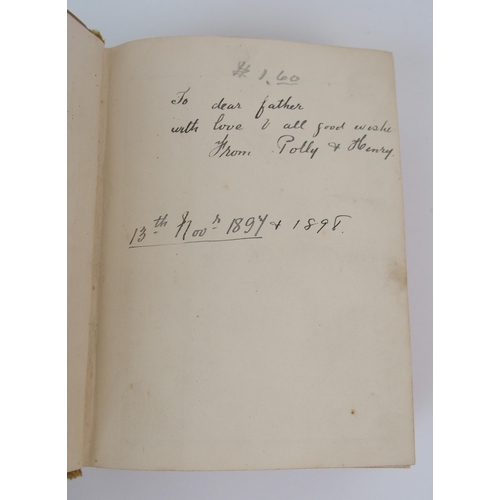 # 1.60
To dear father
with love & all good wishe
From Polly & Henry.
13th Novr 1897 & 1898.